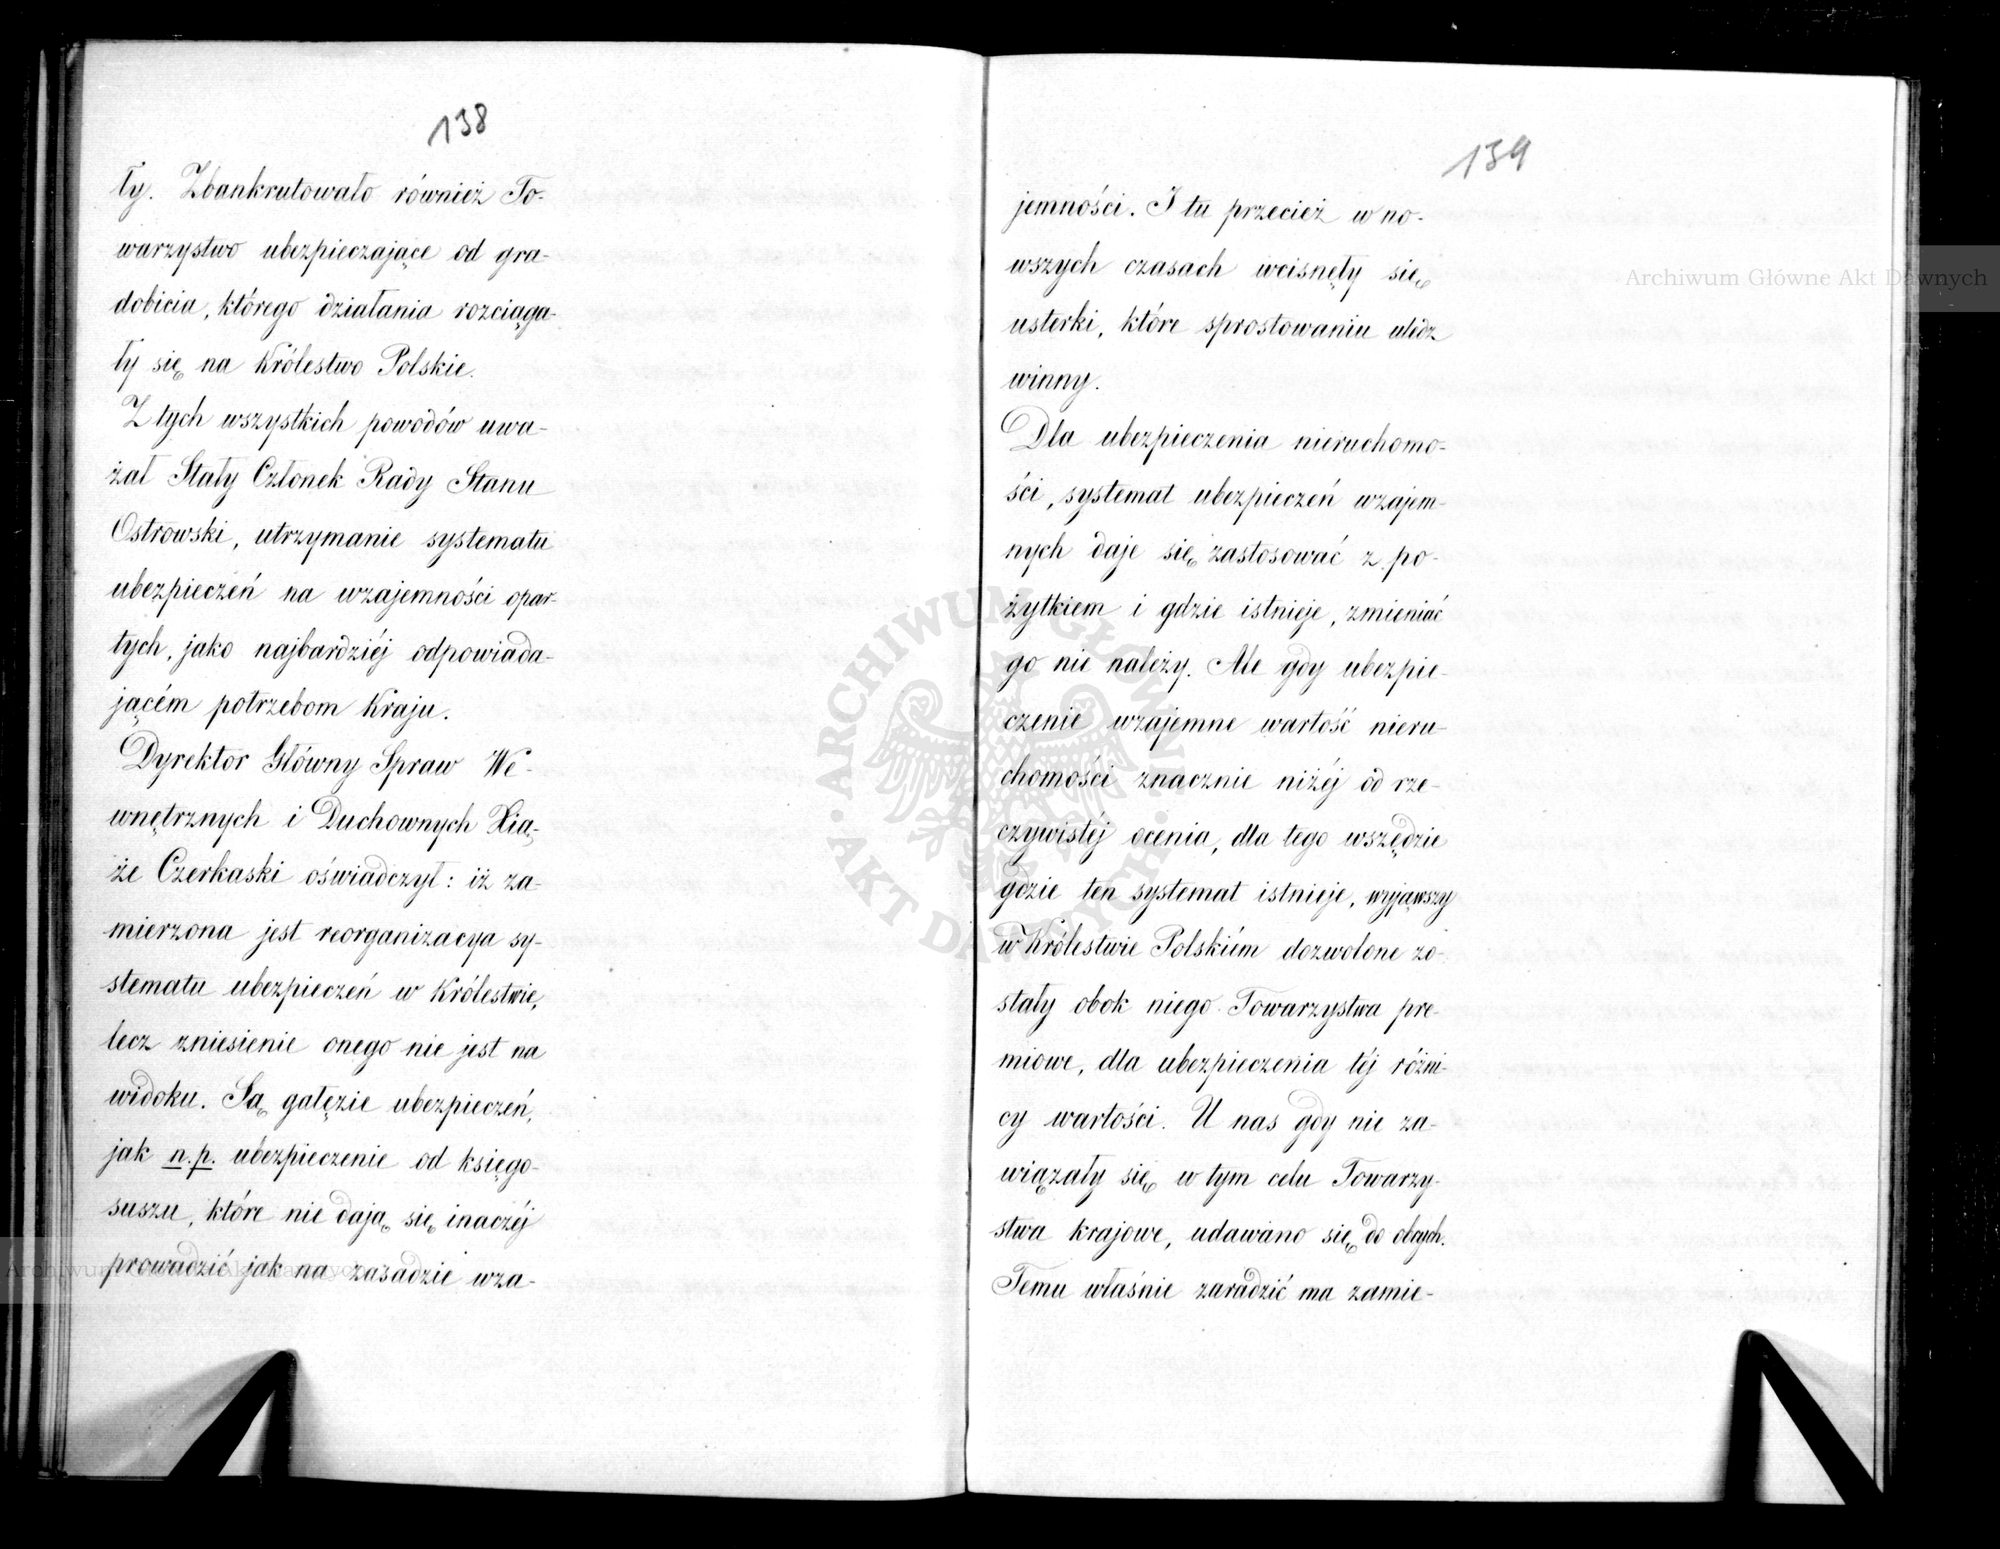 138
ły. Zbankrutowało również To-
warzystwo ubezpieczające od gra-
dobicia, którego działania rozciąga-
ły się na Królestwo Polskie.
Z tych wszystkich powodów uwa-
żał Stały Członek Rady Stanu
Ostrowski, utrzymanie systematu
ubezpieczeń na wzajemności opar-
tych, jako najbardziéj odpowiada-
jącém potrzebom Kraju.
Dyrektor Główny Spraw We-
wnętrznych i Duchownych Xią-
że Czerkaski oświadczył: iż za-
mierzona jest reorganizacya sy-
stematu ubezpieczeń w Królestwie,
lecz zniesienie onego nie jest na
widoku. Są gałęzie ubezpieczeń,
jak n.p. ubezpieczenie od księgo-
suszu, które nie dają się inaczéj
prowadzić jak na zasadzie wza-
139
jemności. I tu przecież w no-
wszych czasach wcisnęły się
usterki, które sprostowaniu uledz
winny.
Dla ubezpieczenia nieruchomo-
ści, systemat ubezpieczeń wzajem-
nych daje się zastosować z po-
żytkiem i gdzie istnieje, zmieniać
go nie należy. Ale gdy ubezpie-
czenie wzajemne wartość nieru-
chomości znacznie niżéj od rze-
czywistéj ocenia, dla tego wszędzie
gdzie ten systemat istnieje, wyjąwszy
w Królestwie Polskiém dozwolone zo-
stały obok niego Towarzystwa pre-
miowe, dla ubezpieczenia téj różni-
cy wartości. U nas gdy nie za-
wiązały się w tym celu Towarzy-
stwa krajowe, udawano się do obcych.
Temu właśnie zaradzić ma zamie-
Archiwum Główne Akt Dawnych
ARCHIWUM GŁÓWNE • AKT DAWNYCH •
Archiwum Główne Akt Dawnych